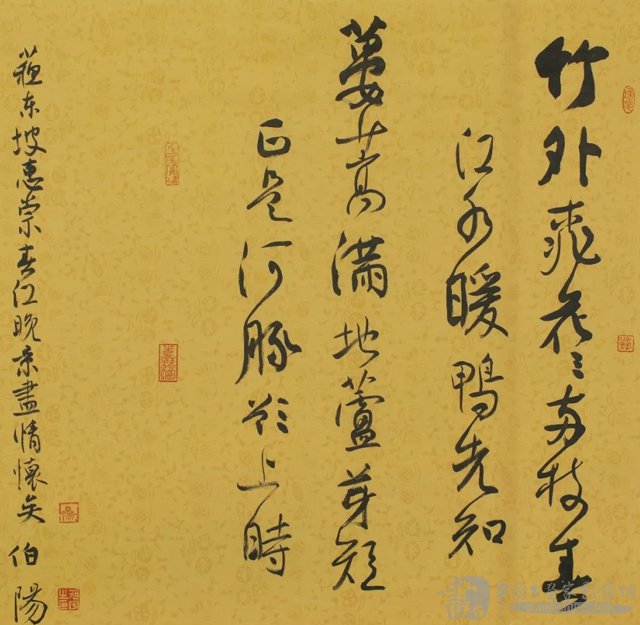 竹外桃花三兩枝春
江水暖鴨先知
蔞蒿滿地蘆芽短
正是河豚欲上時
蘇东坡惠崇春江晚景盡情懷矣 伯陽